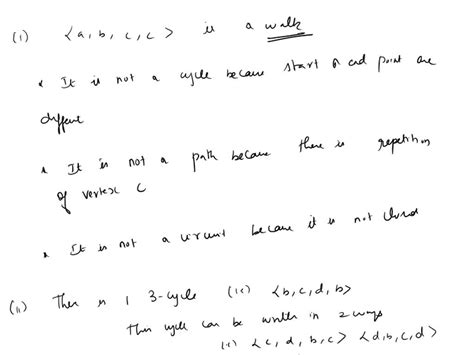 (i) <a, b, c, c> is a walk
* It is not a cycle because start & end point are
different
* It is not a path because there is repetition
of vertex C
* It is not a circuit because it is not closed
(ii) There is 1 3-cycle (ie) <b, c, d, b>
This cycle can be written in 2 ways
(ie) <c, d, b, c> <d, b, c, d>